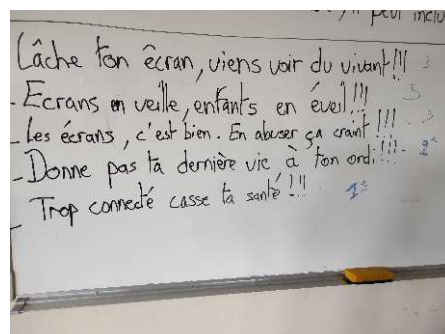 il peut inclu
Lâche ton écran, viens voir du vivant!!! 3
- Ecrans en veille, enfants en éveil!!! 5
- Les écrans, c'est bien. En abuser ça craint!!! 3
- Donne pas ta dernière vie à ton ordi!!! - 2e
- Trop connecté casse ta santé!!! 1e